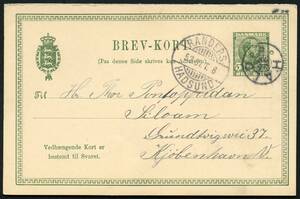 BREV-KORT
(Paa denne Side skrives kun
DANMARK
5
RANDERS
HADSUND
Til
H. Hr. Pontoppidan
Siloam
Grundtvigsvei 37.
Kjöbenhavn V.
Vedhængende Kort er
bestemt til Svaret.